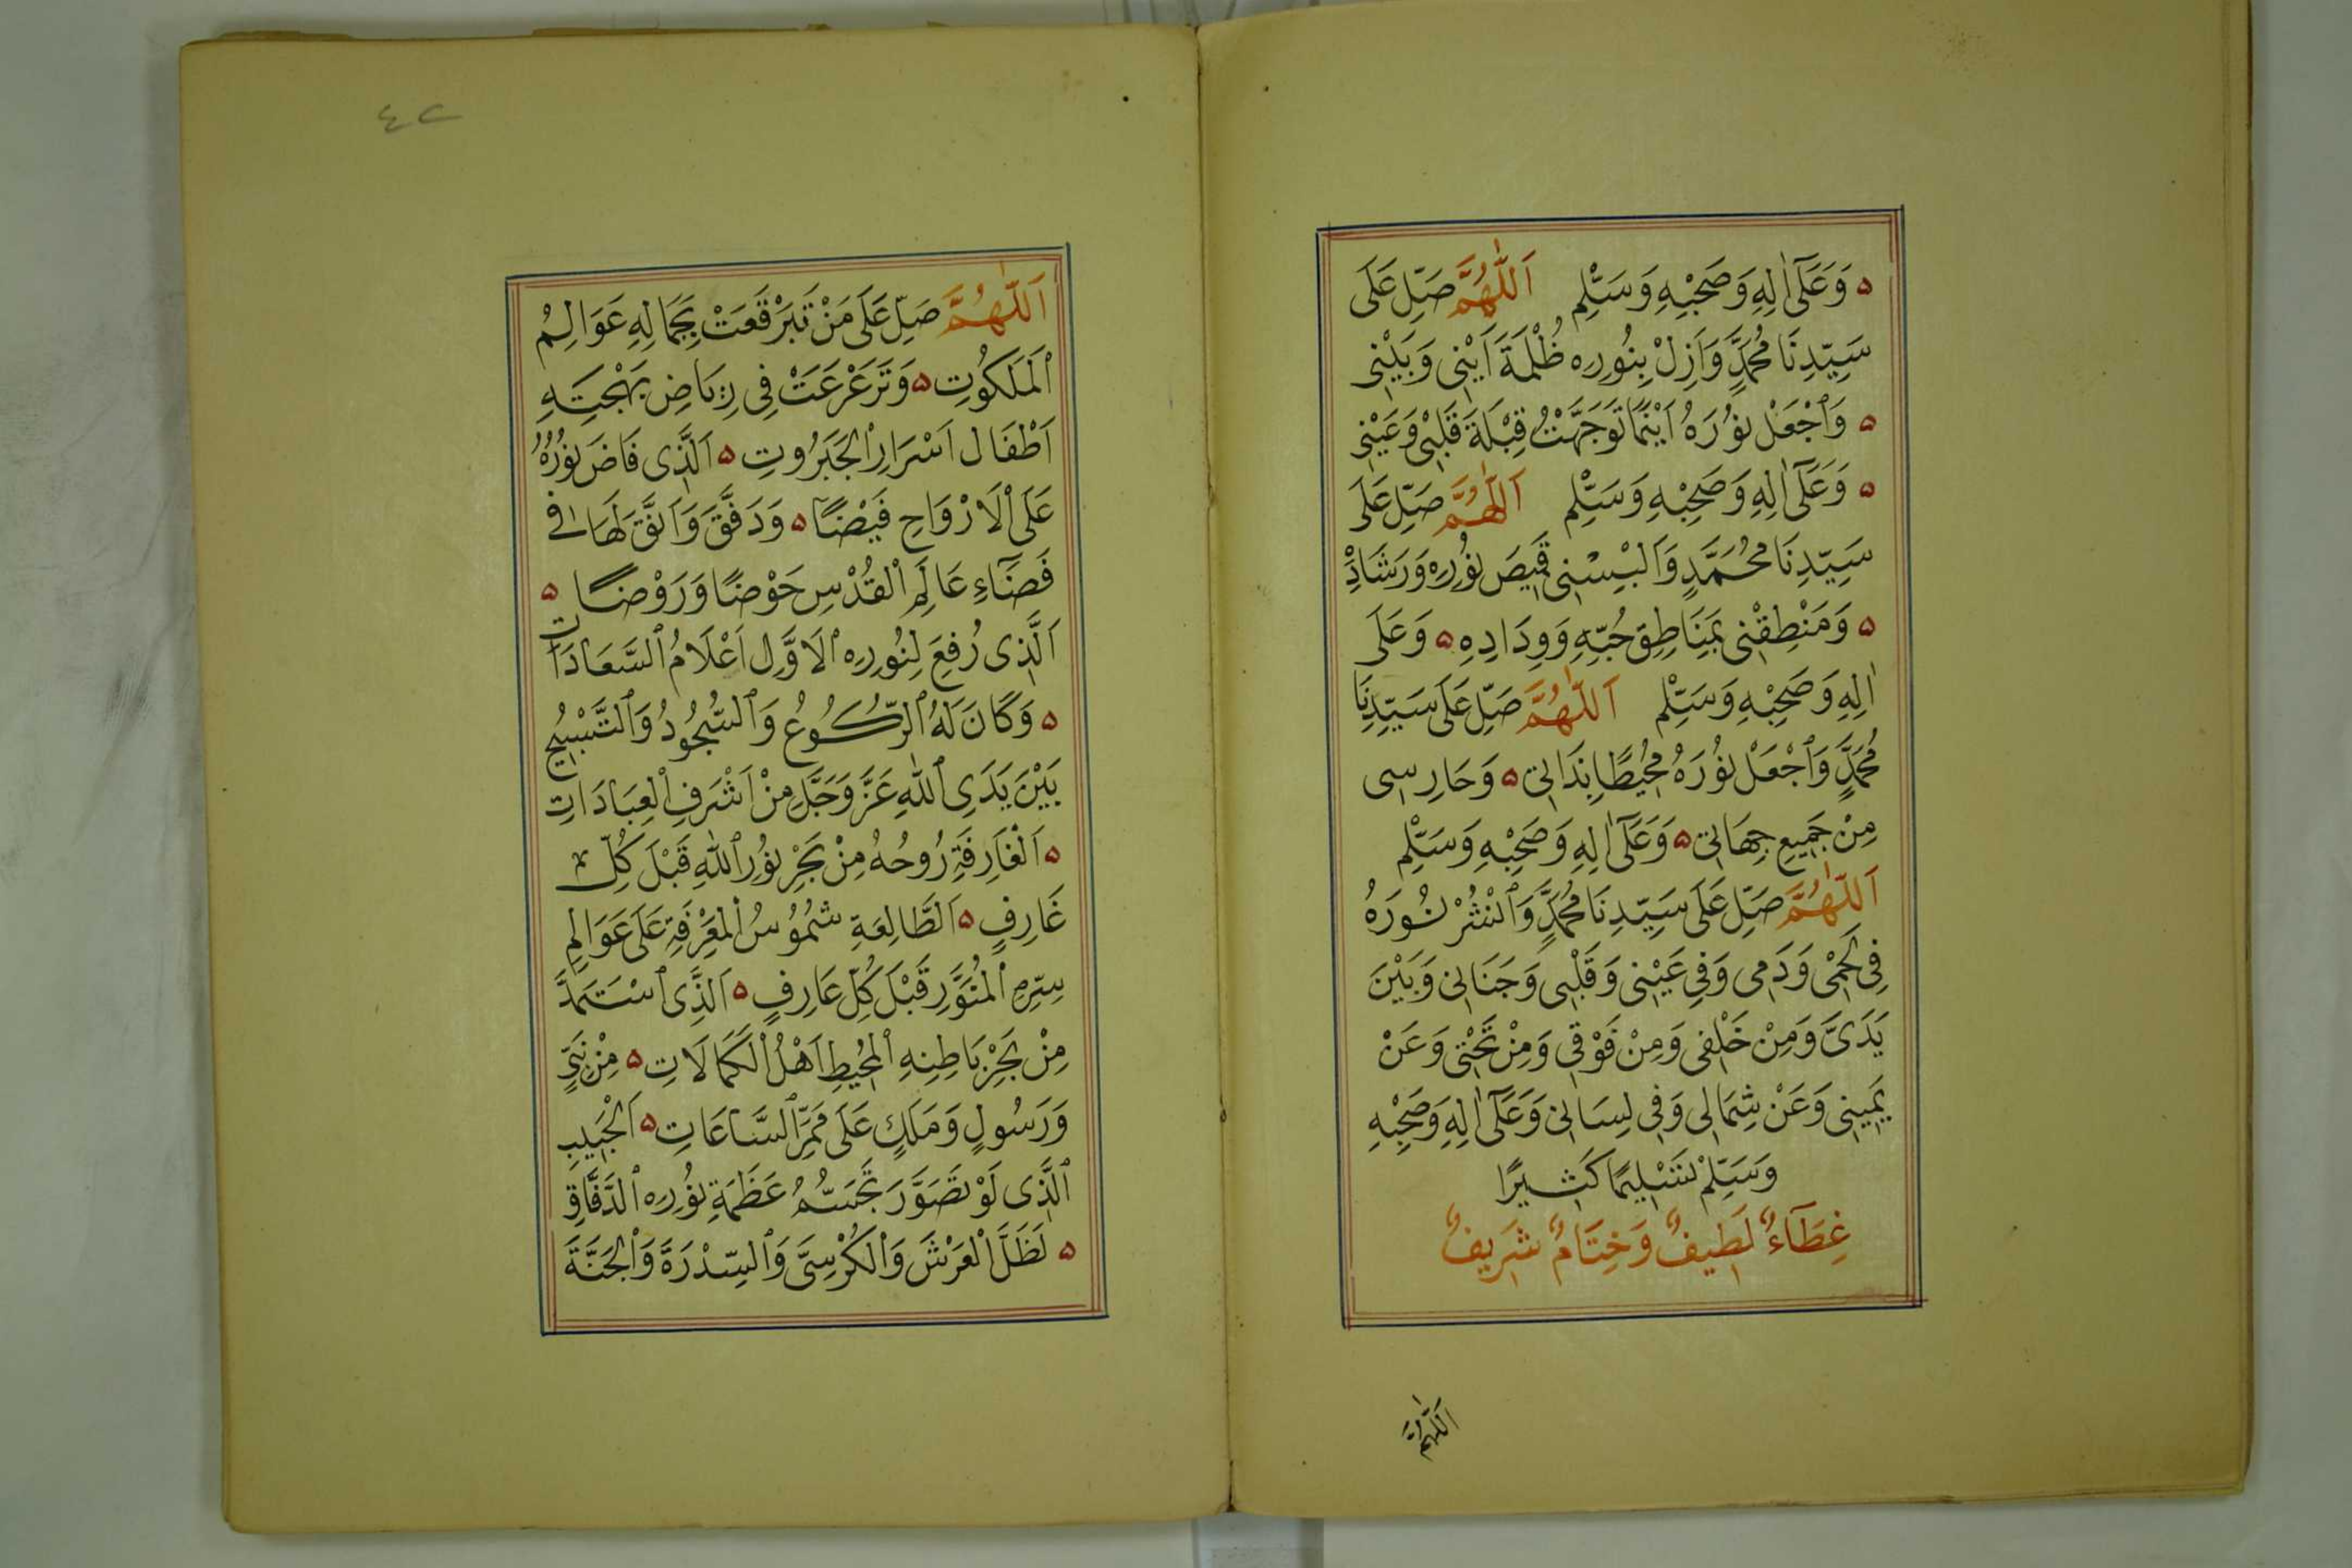 ه وَعَلَىٰ اٰلِهِ وَصَحْبِهِ وَسَلِّمْ اَللّٰهُمَّ صَلِّ عَلَى
سَيِّدِنَا مُحَمَّدٍ وَاَزِلْ بِنُورِهِ ظُلْمَةَ اَيْنِى وَبَيْنِى
ه وَٱجْعَلْ نُورَهُ اَيْنَمَا تَوَجَّهْتُ قِبْلَةَ قَلْبِى وَعَيْنِى
ه وَعَلَىٰ اٰلِهِ وَصَحْبِهِ وَسَلِّمْ اَللّٰهُمَّ صَلِّ عَلَى
سَيِّدِنَا مُحَمَّدٍ وَاَلْبِسْنِى قَمِيصَ نُورِهِ وَرَشَادِهِ
ه وَمَنْطِقْنِى بِمَنَاطِقِ حُبِّهِ وَوِدَادِهِ ه وَعَلَى
اٰلِهِ وَصَحْبِهِ وَسَلِّمْ اَللّٰهُمَّ صَلِّ عَلَى سَيِّدِنَا
مُحَمَّدٍ وَٱجْعَلْ نُورَهُ مُحِيطًا بِذَاتِى ه وَحَارِسِى
مِنْ جَمِيعِ جِهَاتِى ه وَعَلَىٰ اٰلِهِ وَصَحْبِهِ وَسَلِّمْ
اَللّٰهُمَّ صَلِّ عَلَى سَيِّدِنَا مُحَمَّدٍ وَٱنْشُرْ نُورَهُ
فِى لَحْمِى وَدَمِى وَفِى عَيْنِى وَقَلْبِى وَجَنَانِى وَبَيْنَ
يَدَىَّ وَمِنْ خَلْفِى وَمِنْ فَوْقِى وَمِنْ تَحْتِى وَعَنْ
يَمِينِى وَعَنْ شِمَالِى وَفِى لِسَانِى وَعَلَىٰ اٰلِهِ وَصَحْبِهِ
وَسَلِّمْ تَسْلِيمًا كَثِيرًا
غِطَآءٌ لَطِيفٌ وَخِتَامٌ شَرِيفٌ
اَللّٰهُمَّ
٤٢
اَللّٰهُمَّ صَلِّ عَلَى مَنْ تَبَرْقَعَتْ بِجَمَالِهِ عَوَالِمُ
ٱلْمَلَكُوتِ ه وَتَرَعْرَعَتْ فِى رِيَاضِ بَهْجَتِهِ
اَطْفَالُ اَسْرَارِ ٱلْجَبَرُوتِ ه اَلَّذِى فَاضَ نُورُهُ
عَلَى ٱلْاَرْوَاحِ فَيْضًا ه وَدَفَّقَ وَاَنَّقَ لَهَا فِى
فَضَآءِ عَالَمِ ٱلْقُدْسِ حَوْضًا وَرَوْضًا ه
اَلَّذِى رُفِعَ لِنُورِهِ ٱلْاَوَّلِ اَعْلَامُ ٱلسَّعَادَاتِ
ه وَكَانَ لَهُ ٱلرُّكُوعُ وَٱلسُّجُودُ وَٱلتَّسْبِيحُ
بَيْنَ يَدَىِ ٱللّٰهِ عَزَّ وَجَلَّ مِنْ اَشْرَفِ ٱلْعِبَادَاتِ
ه اَلْغَارِفَةِ رُوحُهُ مِنْ بَحْرِ نُورِ ٱللّٰهِ قَبْلَ كُلِّ
غَارِفٍ ه اَلطَّالِعَةِ شُمُوسُ ٱلْمَعْرِفَةِ عَلَى عَوَالِمِ
سِرِّهِ ٱلْمُنَوَّرِ قَبْلَ كُلِّ عَارِفٍ ه اَلَّذِى ٱسْتَمَدَّ
مِنْ بَحْرِ بَاطِنِهِ ٱلْمُحِيطِ اَهْلُ ٱلْكَمَالَاتِ ه مِنْ نَبِىٍّ
وَرَسُولٍ وَمَلَكٍ عَلَى مَمَرِّ ٱلسَّاعَاتِ ه اَلْحَبِيبِ
ٱلَّذِى لَوْ تَصَوَّرَ تَجَسُّمُ عَظَمَةِ نُورِهِ ٱلدَّفَّاقِ
ه لَظَلَّ ٱلْعَرْشَ وَٱلْكُرْسِىَّ وَٱلسِّدْرَةَ وَٱلْجَنَّةَ